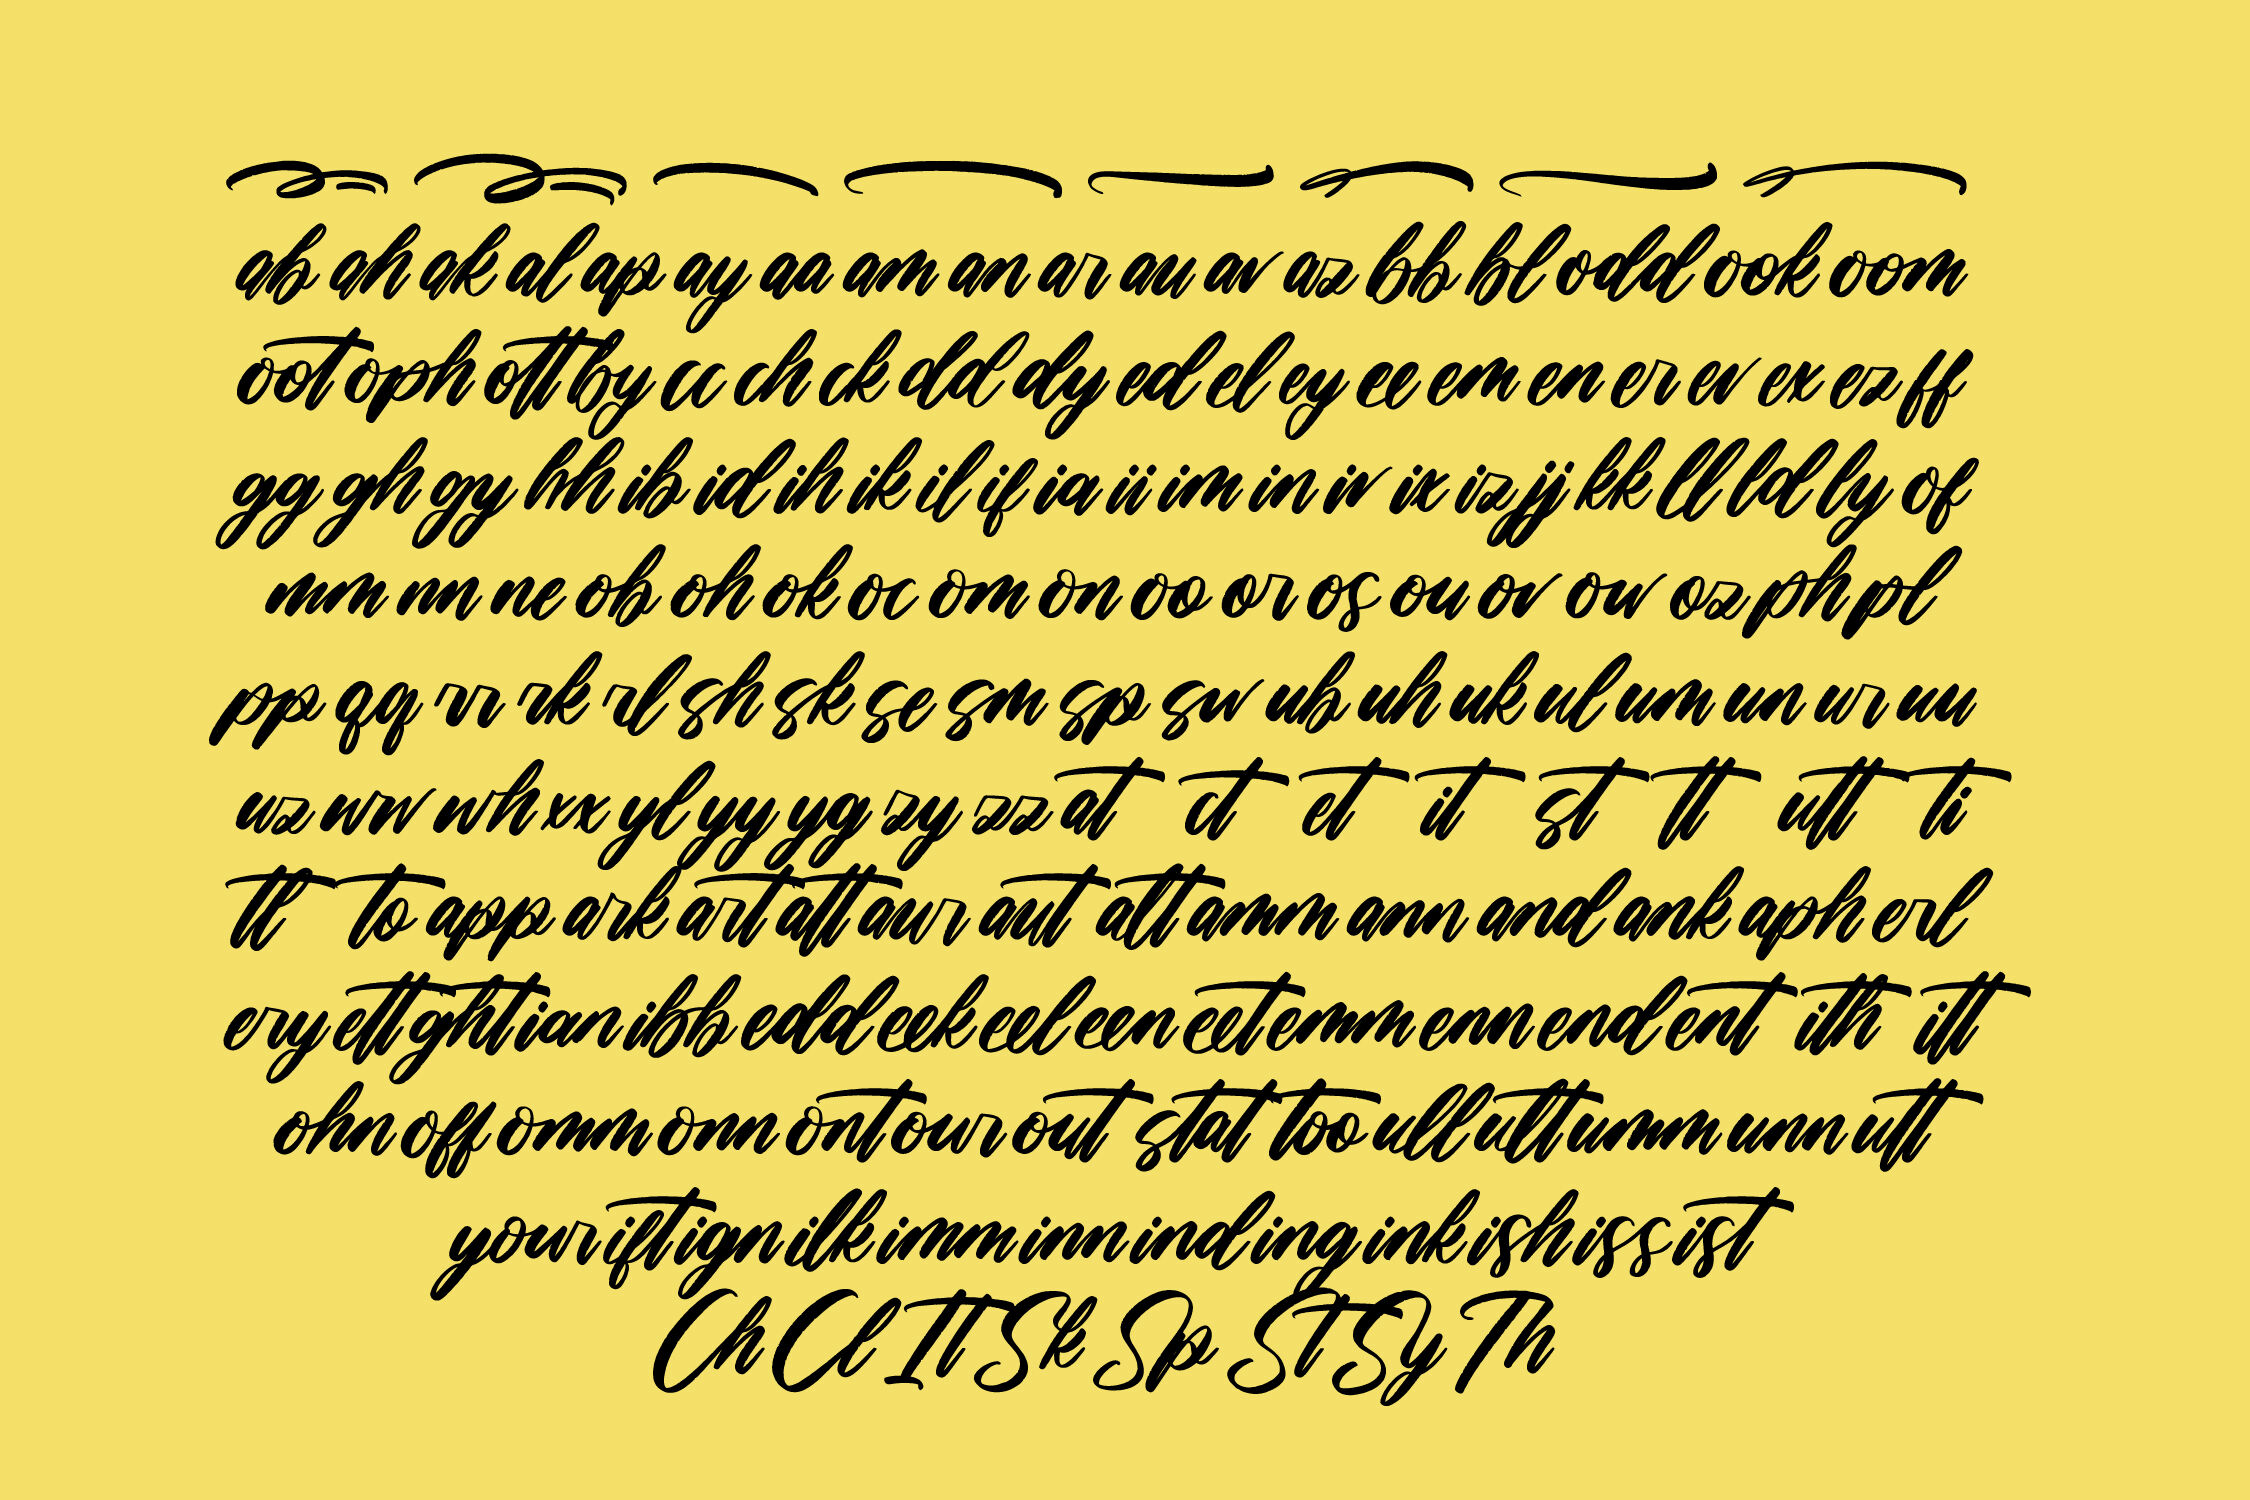 ab ah ak al ap ay aa am an ar au av az bb bl odd ook oom
oot oph ott by cc ch ck dd dy ed el ey ee em en er ev ex ez ff
gg gh gy hh ib id ih ik il if ia ii im in iv ix iz jj kk ll ld ly of
mm nn ne ob oh ok oc om on oo or os ou ov ow oz ph pl
pp qq rr rk rl sh sk se sm sp sw ub uh uk ul um un ur uu
uz wv wh xx yl yy yg zy zz at ct et it st tt utt ti
tl to app ark art att aur aut alt amm ann and ank aph erl
ery ett ght ian ibb edd eek eel een eet emm enn end ent ith itt
ohn off omm onn ont our out stat too ull ult umm unn utt
your ift ign ilk imm inn ind ing ink ish iss ist
Ch Cl It Sk Sp St Sy Th